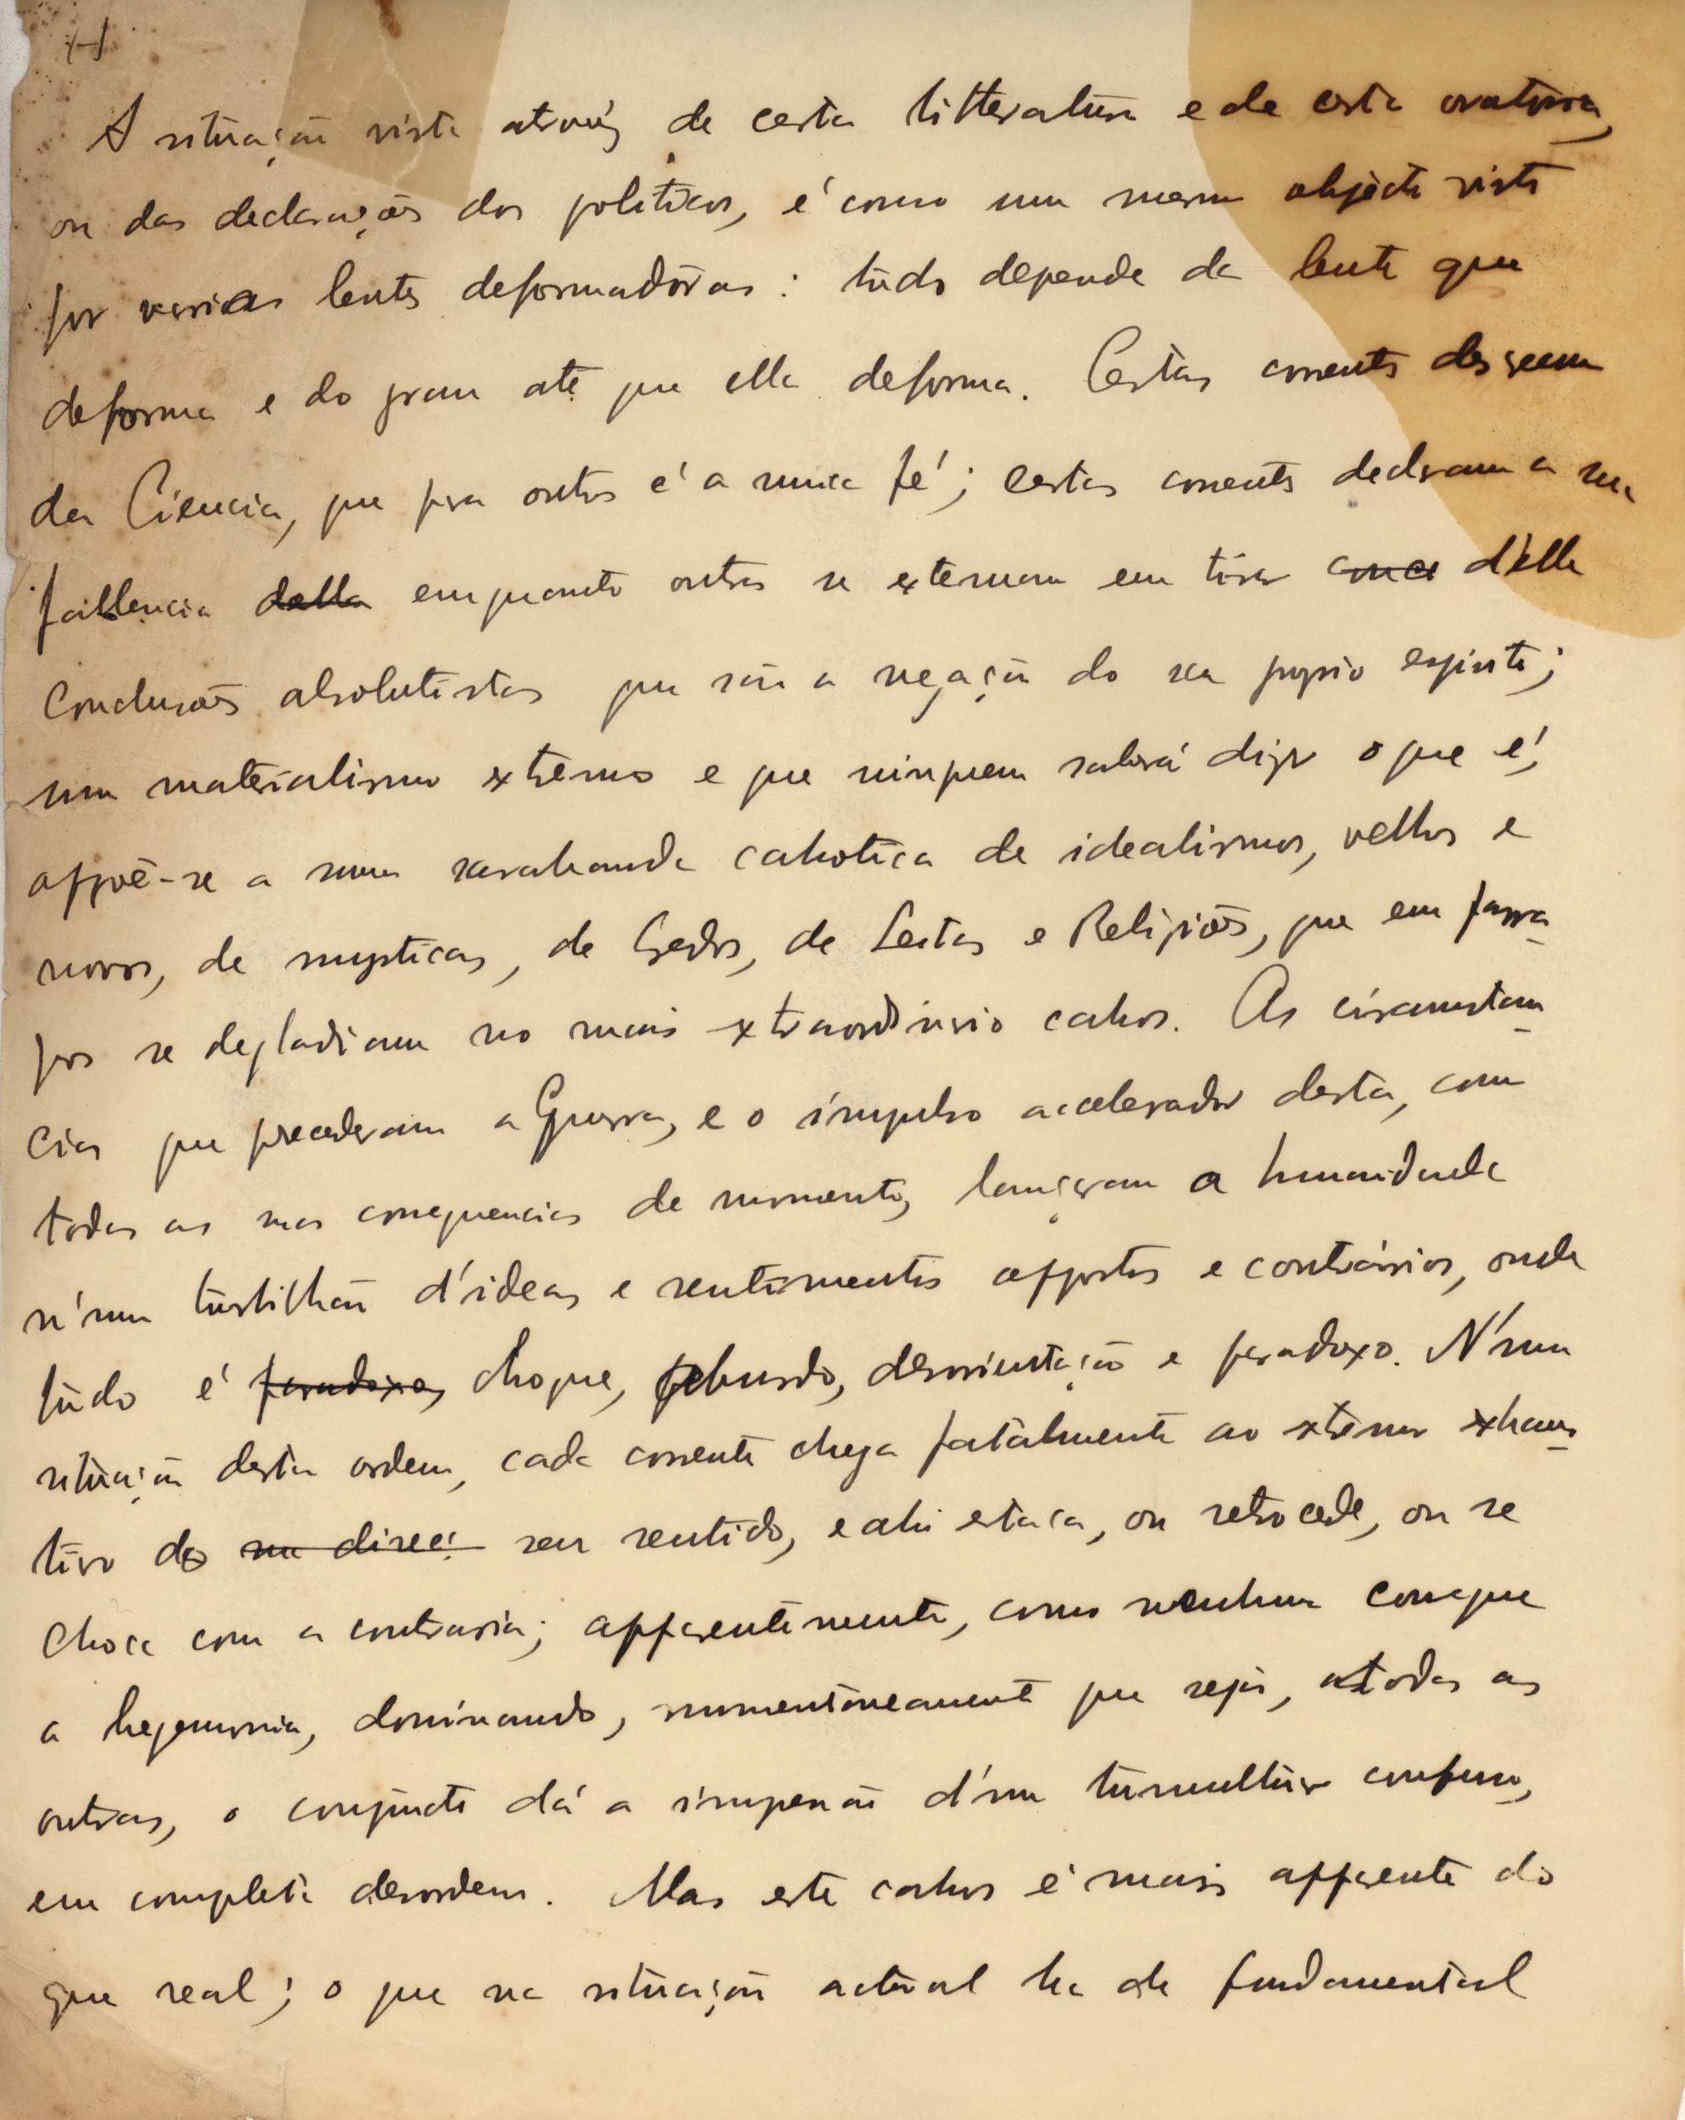 A situação vista atravéz de certa litteratura e de certa oratoria,
ou das declarações dos politicos, é como um mesmo objecto visto
por varias lentes deformadôras: tudo depende da lente que
deforma e do grau até que ella deforma. Certas correntes descreem
da Ciencia, que pra outros é a unica fé; certas correntes declaram a sua
fallencia della emquanto outras se extremam em tirar d'ella
conclusões absolutistas que são a negação do seu proprio espirito;
um materialismo extrêmo e que ninguem saberá dizer o que é,
oppôe-se a uma sarabanda cahotica de idealismos, velhos e
novos, de mysticas, de Credos, de Seitas e Religiões, que em farra-
pos se degladiam no mais extraordinario cahos. As circumstan-
cias que precederam a Guerra, e o impulso accelerador desta, com
todas as suas consequencias de momento, lançaram a humanidade
n'um turbilhão d'ideas e sentimentos oppostos e contrários, onde
tudo é paradoxo, choque, absurdo, desorientação e paradoxo. N'uma
situação desta ordem, cada corrente chega fatalmente ao extremo exhaus-
tivo do su direcç seu sentido, e ahi estaca, ou retrocede, ou se
choca com a contraria; apparentemente, como nenhuma consegue
a hegemonia, dominando, momentaneamente que seja, a todas as
outras, o conjuncto dá a impressão d'um tumultuar confuso,
em completa desordem. Mas este cahos é mais apparente do
que real; o que na situação actual ha de fundamental